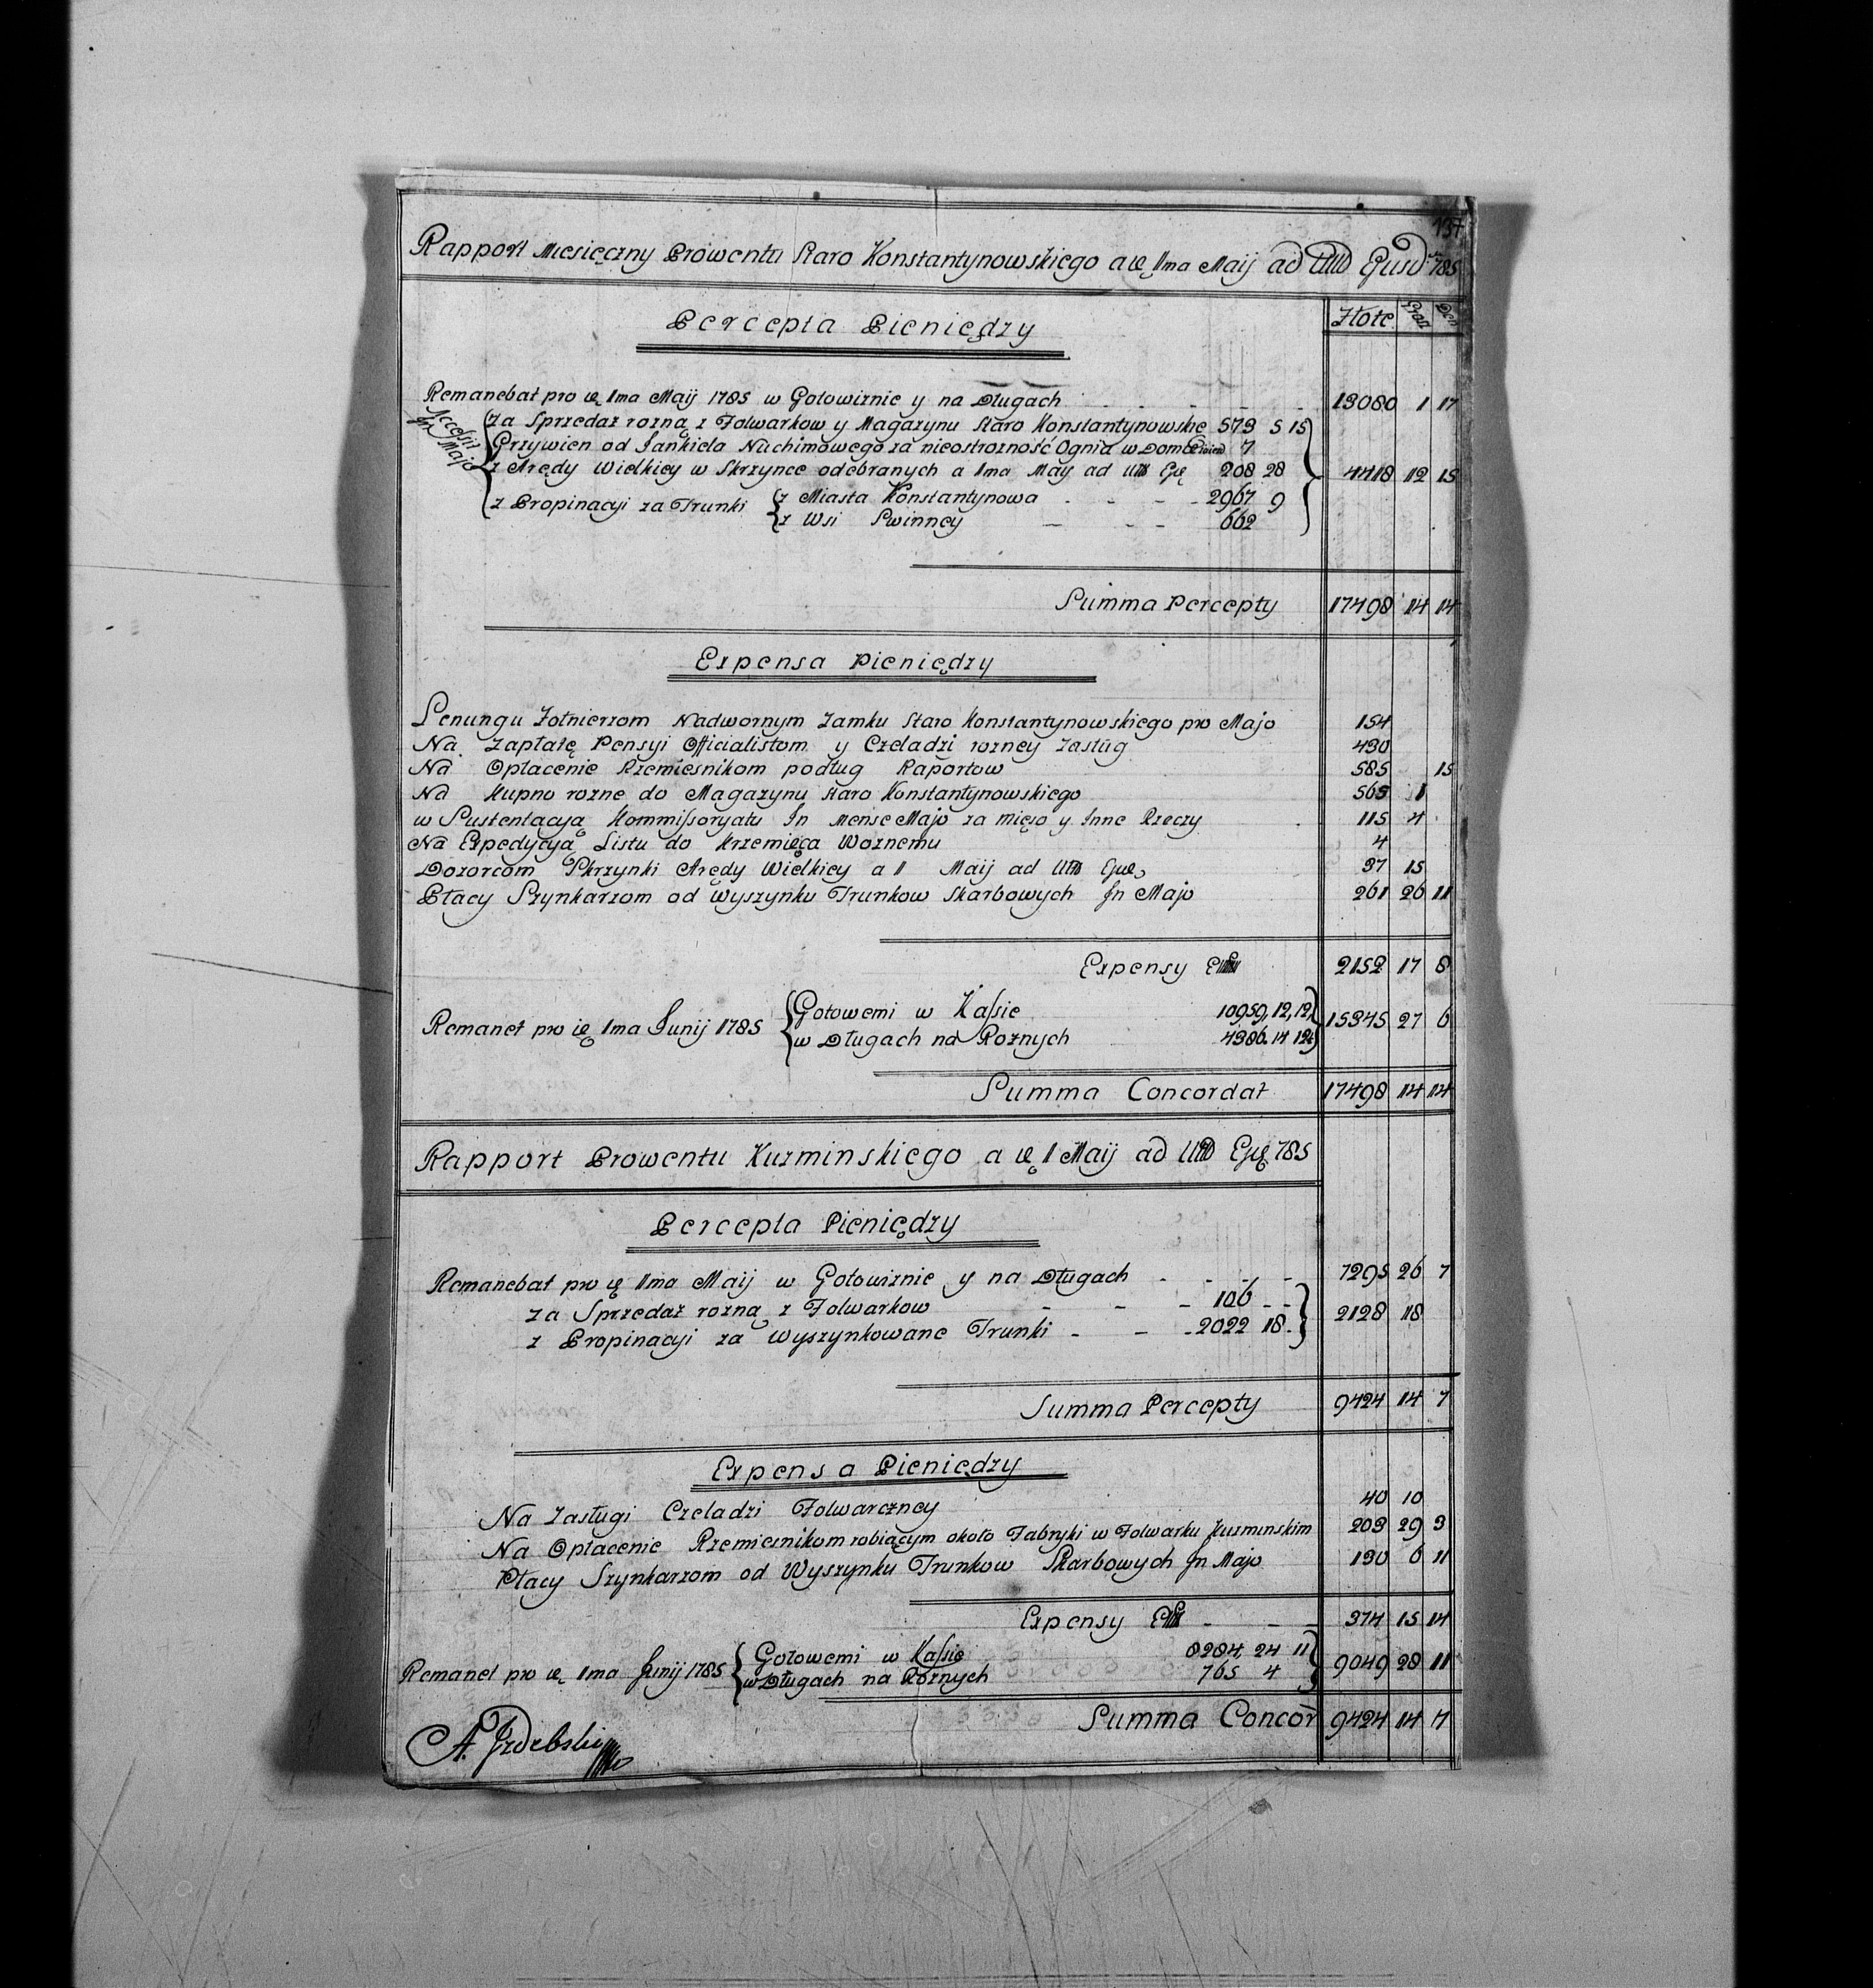 137
Rapport Miesięczny Prowentu Staro Konstantynowskiego a die 1ma Maij ad Ult Ejusd: 785
Percepta Pieniędzy
Złote Gro Den
Remanebat pro die 1ma Maij 1785 w Gotowiznie y na Długach 13080 1 17
Accessit in Majo
za Sprzedaż rozną z Folwarkow y Magazynu Staro Konstantynowskie 573 5 15
Grzywien od Jankiela Nuchimowego za nieostrozność Ognia w Dome 7
z Arędy Wielkiey w Skrzynce odebranych a 1ma May ad Ult Eje 208 28 4418 12 15
z Propinacyi za Trunki z Miasta Konstantynowa 2967 9
z Wsi Swinney 662
Summa Percepty 17498 14 14
Expensa Pieniędzy
Lenungu Żołnierzom Nadwornym Zamku Staro Konstantynowskiego pro Majo 154
Na Zapłatę Pensyi Officialistom y Czeladzi rozney Zasług 430
Na Opłacenie Rzemiesnikom podług Raportow 585 15
Na Kupno rozne do Magazynu Staro Konstantynowskiego 565 1
w Sustentacyą Kommissoryatu In mense Majo za mięso y Inne Rzeczy 115 4
Na Expedycyą Listu do Krzemięca Woznemu 4
Dozorcom Skrzynki Arędy Wielkiey a 1 Maij ad Ult Ejus 37 15
Płacy Szynkarzom od Wyszynku Trunkow Skarbowych In Majo 261 26 11
Expensy 2152 17 8
Remanet pro die 1ma Junij 1785 Gotowemi w Kassie 10959, 12, 12, 15345 27 6
w Długach na Roznych 4386. 14 12
Summa Concordat 17498 14 14
Rapport Prowentu Kuzminskiego a die 1 Maij ad Ult Eje 785
Percepta Pieniędzy
Remanebat pro die 1ma Maij w Gotowiznie y na Długach 7295 26 7
za Sprzedaż rozną z Folwarkow 106 2128 18
z Propinacyi za Wyszynkowane Trunki 2022 18
Summa Percepty 9424 14 7
Expensa Pieniędzy
Na Zasługi Czeladzi Folwarczney 40 10
Na Opłacenie Rzemiesnikom robiącym około Fabryki w Folwarku Kuzminskim 203 29 3
Płacy Szynkarzom od Wyszynku Trunkow Skarbowych In Majo 130 6 11
Expensy 374 15 14
Remanet pro die 1ma Junij 1785 Gotowemi w Kassie 8284, 24 11 9049 28 11
w Długach na Roznych 765 4
Summa Concor 9424 14 7
A. Jzdebski